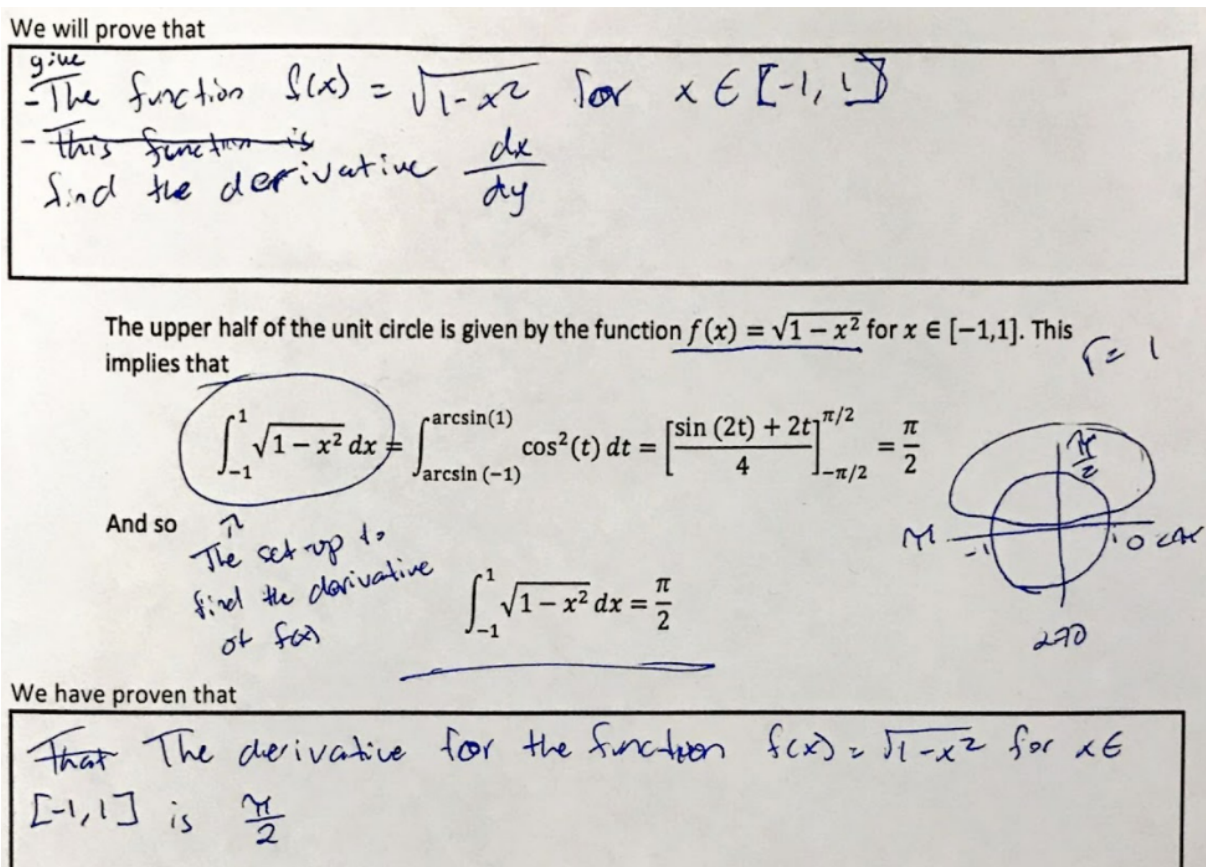 We will prove that
give
- The function f(x) = √1-x² for x ∈ [-1, 1]
- This function is
find the derivative dx/dy
The upper half of the unit circle is given by the function f(x) = √1 − x² for x ∈ [−1,1]. This
implies that
r = 1
∫₋₁¹ √1 − x² dx = ∫arcsin(−1)^arcsin(1) cos²(t) dt = [sin (2t) + 2t / 4]₋π/2^π/2 = π/2
π/2
π -1 1 0
And so
The set up to
find the derivative
of f(x)
∫₋₁¹ √1 − x² dx = π/2
270
We have proven that
That The derivative for the function f(x) = √1-x² for x ∈
[-1, 1] is π/2